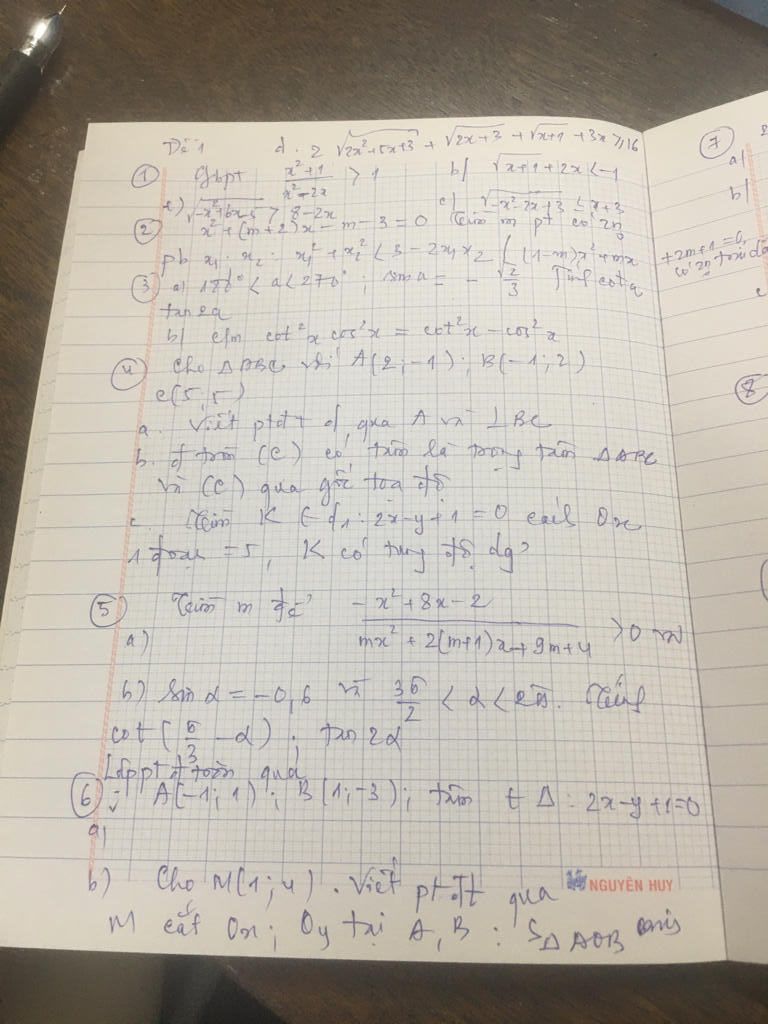 Đề 1 d. 2√(2x²+5x+3) + √(2x+3) + √(x+1) + 3x ≥ 16
① Gbpt (x²+1)/(x²-2x) > 1 b/ √(x+1+2x) < -1
e) √(-x²+6x-5) > 8-2x c/ √(-x²-2x+3) ≤ x+3
② x²+(m+2)x-m-3=0 Tìm m pt có 2n₀
pb x₁. x₂: x₁²+x₂² < 3-2x₁x₂ / (1-m)x²+mx
+2m+1=0,
có 2n₀
③ a) 180° < a < 270°; sin a = -√2/3 Tính cot a
tan 2a
b/ c/m cot²x cos²x = cot²x - cos²x
④ Cho ΔABC với A(2;-1); B(-1;2)
C(5;5)
a. Viết ptđt d qua A và ⊥BC
b. đ tròn (C) có tâm là trọng tâm ΔABC
và (C) qua gốc toạ độ
c. Tìm K ∈ d₁: 2x-y+1=0 cách Ox
1 đoạn = 5, K có tung độ dg?
⑤ Tìm m để
a) (-x²+8x-2)/(mx²+2(m+1)x+9m+4) > 0 vn
b) Sin α = -0,6 và 3π/2 < α < 2π. Tính
cot(π/3 - α); tan 2α
Lập pt đ tròn qua
⑥ A(-1;1); B(1;-3); tâm ∈ Δ: 2x-y+1=0
a,
b) Cho M(1;4). Viết ptđt qua
NGUYÊN HUY
M cắt Ox; Oy tại A, B: SΔAOB
⑦
a/
b/
c
⑧